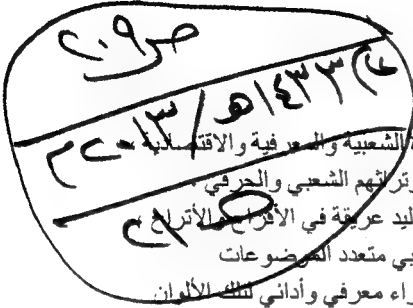 ص ٢٠٩
١٤٣٣هـ / ٢٠١٣م
الشعبية والمعرفية والاقتصادية
وتراثهم الشعبي والحرفي .
ليد عريقة في الأفراح والأتراح
بي متعدد الموضوعات
راء معرفي وأدائي لتلك الألوان